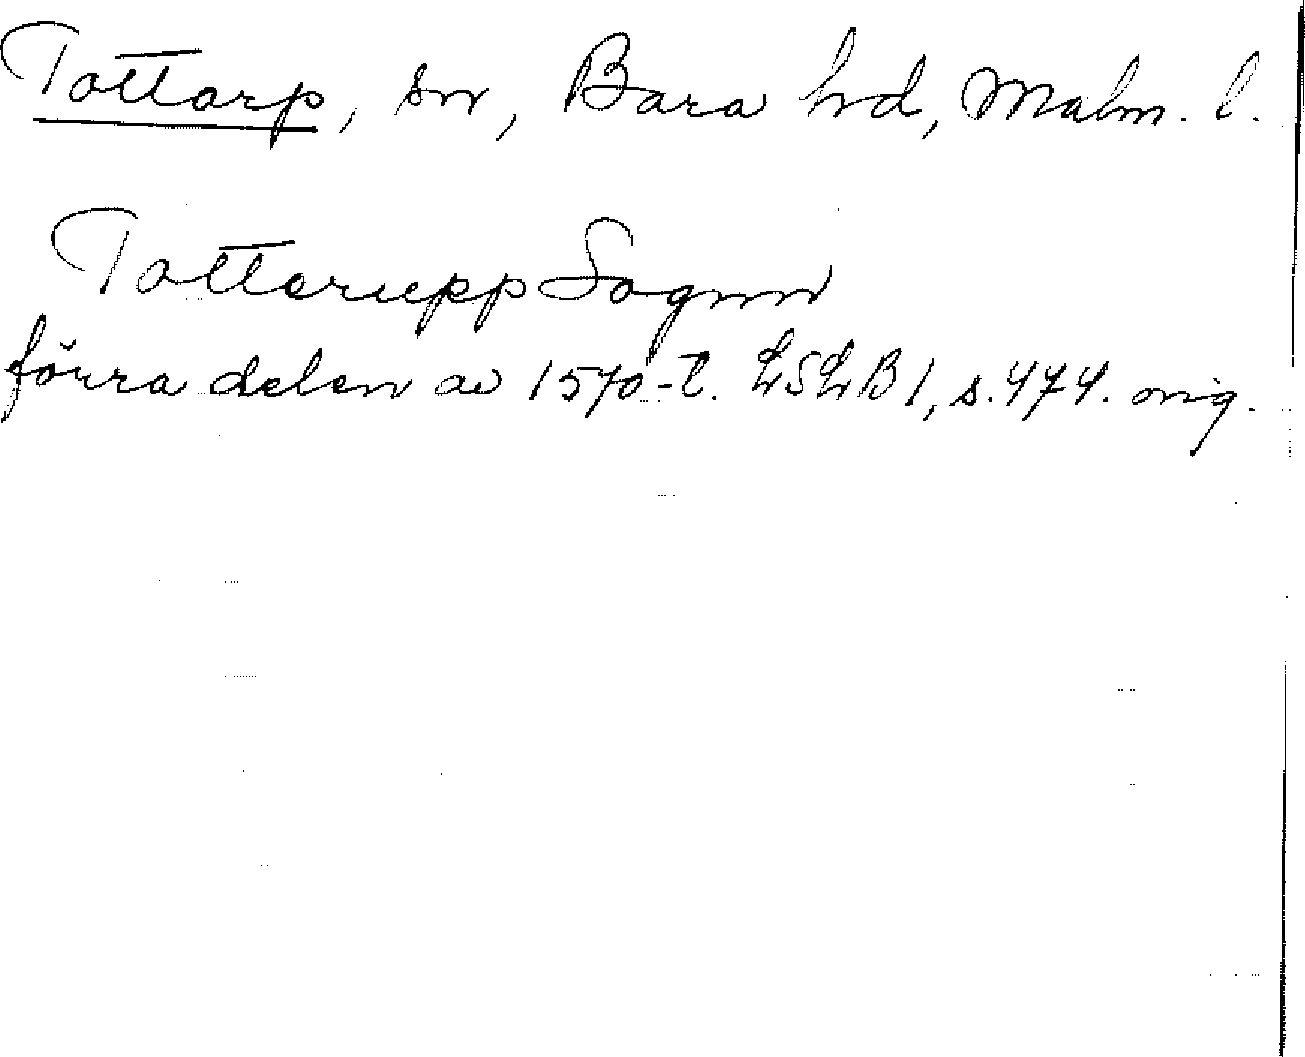 Tottarp, sn, Bara hd, Malm. l.
Tottarupp Sognn
förra delen av 1570-t. LSLB1, s. 474. orig.